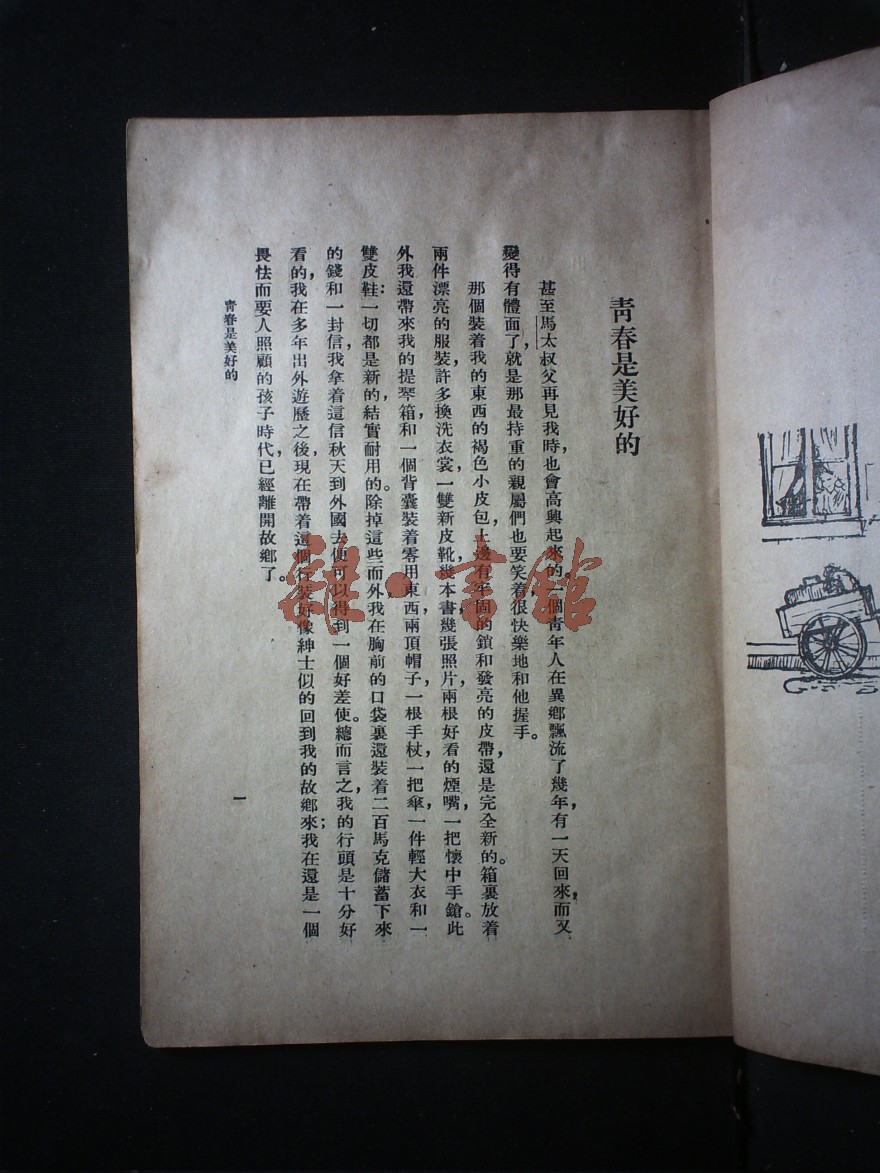 青春是美好的
甚至馬太叔父再見我時,也會高興起來的。一個青年人在異鄉飄流了幾年,有一天回來而又
變得有體面了,就是那最持重的親屬們也要笑着很快樂地和他握手。
那個裝着我的東西的褐色小皮包,上邊有牢固的鎖和發亮的皮帶,還是完全新的。箱裏放着
兩件漂亮的服裝,許多換洗衣裳,一雙新皮靴,幾本書,幾張照片,兩根好看的煙嘴,一把懷中手鎗。此
外我還帶來我的提琴箱,和一個背囊裝着零用東西,兩頂帽子,一根手杖,一把傘,一件輕大衣和一
雙皮鞋:一切都是新的,結實耐用的。除掉這些而外,我在胸前的口袋裏還裝着二百馬克儲蓄下來
的錢和一封信,我拿着這信秋天到外國去便可以得到一個好差使。總而言之,我的行頭是十分好
看的,我在多年出外遊歷之後,現在帶着這個行裝好像紳士似的回到我的故鄉來;我在還是一個
畏怯而要人照顧的孩子時代,已經離開故鄉了。
青春是美好的
一
雜·書館